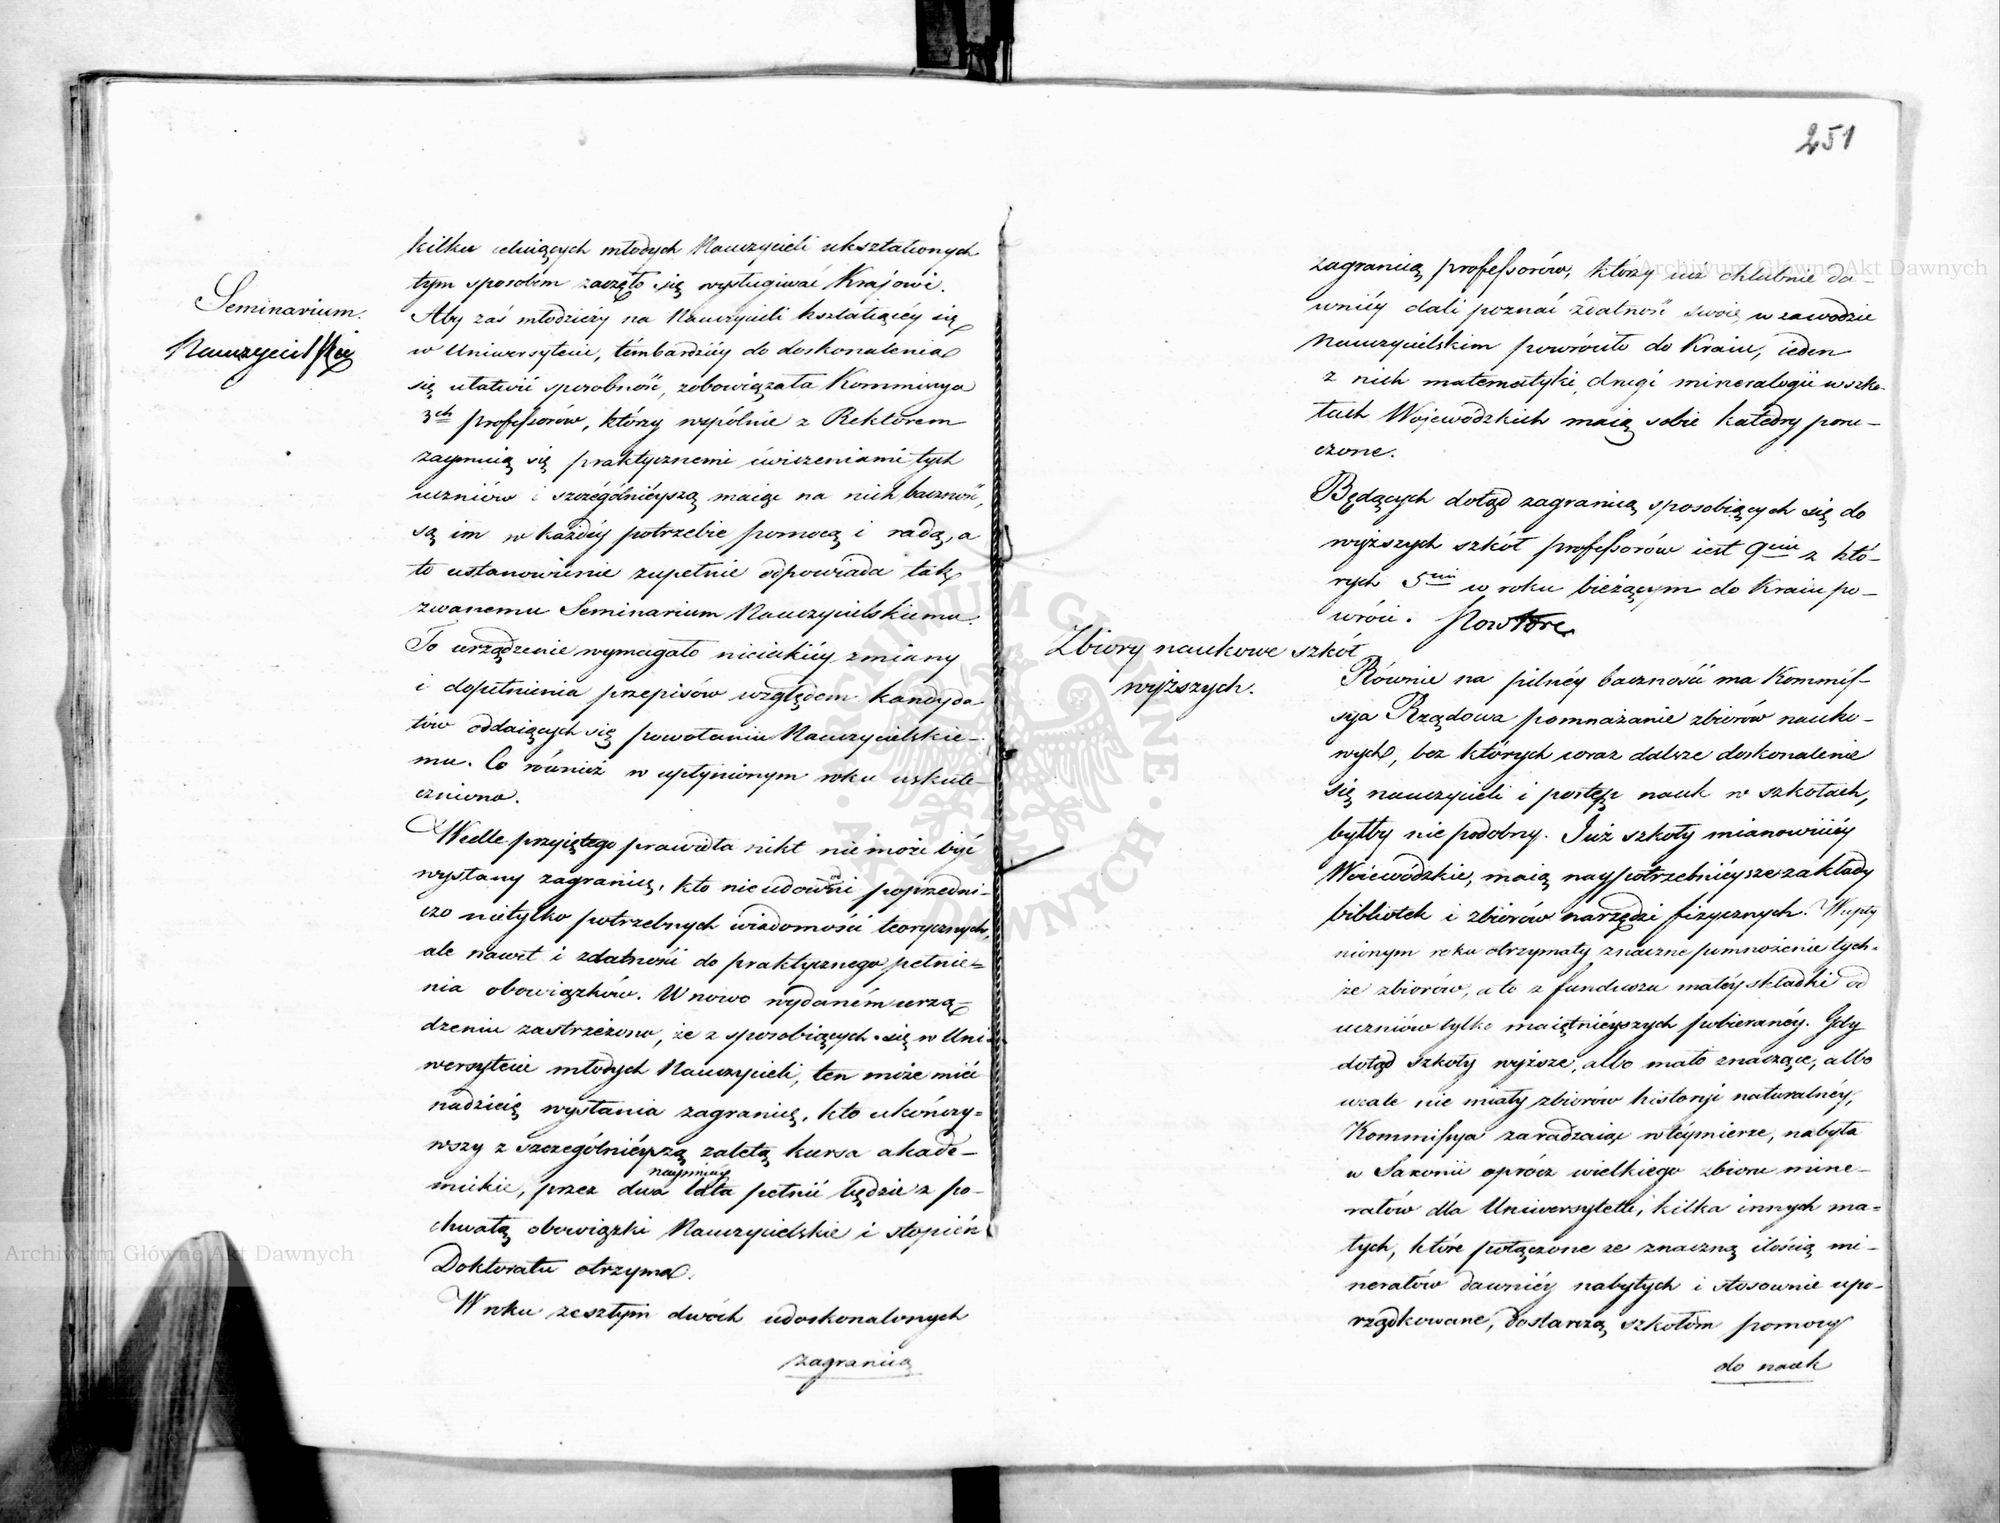 Seminarium.
Nauczycielskie
kilku celuiących młodych Nauczycieli ukształconych
tym sposobem zaczęło się wysługiwać Krajowi.
Aby zaś młodzieży na Nauczycieli kształcącéy się
w Uniwersytecie, témbardziéy do doskonalenia
się ułatwić sposobność, zobowiązała Kommissya
3ch professorów, którzy wspólnie z Rektorem
zaymuią się praktycznemi ćwiczeniami tych
uczniów i szczególniéyszą maiąc na nich baczność,
są im w każdéy potrzebie pomocą i radą, a
to ustanowienie zupełnie odpowiada tak
zwanemu Seminarium Nauczycielskiemu.
To urządzenie wymagało nieiakiéy zmiany
i dopełnienia przepisów względem kandyda
tów oddaiących się powołaniu Nauczycielskie-
mu. Co również w upłynionym roku uskute-
czniono.
Wedle przyiętego prawidła nikt nie może być
wysłany zagranicę, kto nie udowodni poprzedni-
czo nietylko potrzebnych wiadomości teorycznych,
ale nawet i zdatności do praktycznego pełnie=
nia obowiązków. W nowo wydaném urzą=
dzeniu zastrzeżono, że z sposobiących się w Uni-
wersytecie młodych Nauczycieli, ten może mieć
nadzieię wysłania zagranicę, kto ukończy=
wszy z szczególniéyszą zaletą kursa akade-
mickie, przez dwa naymniéy lata pełnić będzie z po-
chwałą obowiązki Nauczycielskie i stopień
Doktoratu otrzyma.
W roku zeszłym dwóch udoskonalonych
zagranicą
251
zagranicą professorów, którzy już chlubnie da-
wniéy dali poznać zdatność swoię w zawodzie
Nauczycielskim powróciło do Kraiu, ieden
z nich matematyki, drugi mineralogii w szko-
łach Wojewódzkich maią sobie katedry poru-
czone.
Będących dotąd zagranicą sposobiących się do
wyższych szkół professorów iest 9ciu z któ-
rych 5ciu w roku bieżącym do Kraiu po-
wróci.
Zbiory naukowe szkół
wyższych.
Równie na pilnéy baczności ma Kommis-
sya Rządowa pomnażanie zbiorów nauko-
wych, bez których coraz dalsze doskonalenie
się nauczycieli i postęp nauk w szkołach,
byłby nie podobny. Już szkoły mianowiciéy
Woiewódzkie, maią naypotrzebniéysze zakłady
bibliotek i zbiorów narzędzi fizycznych. W upły
nionym roku otrzymały znaczne pomnożenie tych-
że zbiorów, a to z funduszu małéy składki od
uczniów tylko maiętniéyszych pobieranéy. Gdy
dotąd szkoły wyższe, albo mało znaczące, albo
wcale nie miały zbiorów historyi naturalnéy,
Kommissya zaradzaiąc w téymierze, nabyła
w Saxonii oprócz wielkiego zbioru mine-
rałów dla Uniwersytetu, kilka innych ma=
łych, które połączone ze znaczną ilością mi-
nerałów dawniéy nabytych i stosownie upo-
rządkowane, dostarczą szkołom pomocy
do nauk
Archiwum Główne Akt Dawnych
Archiwum Główne Akt Dawnych
ARCHIWUM GŁÓWNE AKT DAWNYCH